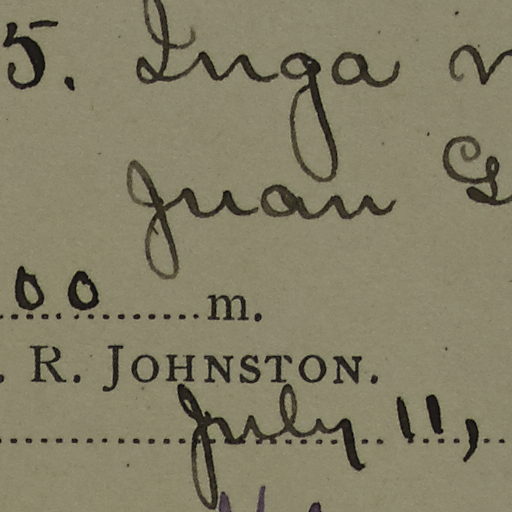 5. Inga
Juan G
00 m.
. R. JOHNSTON.
July 11,